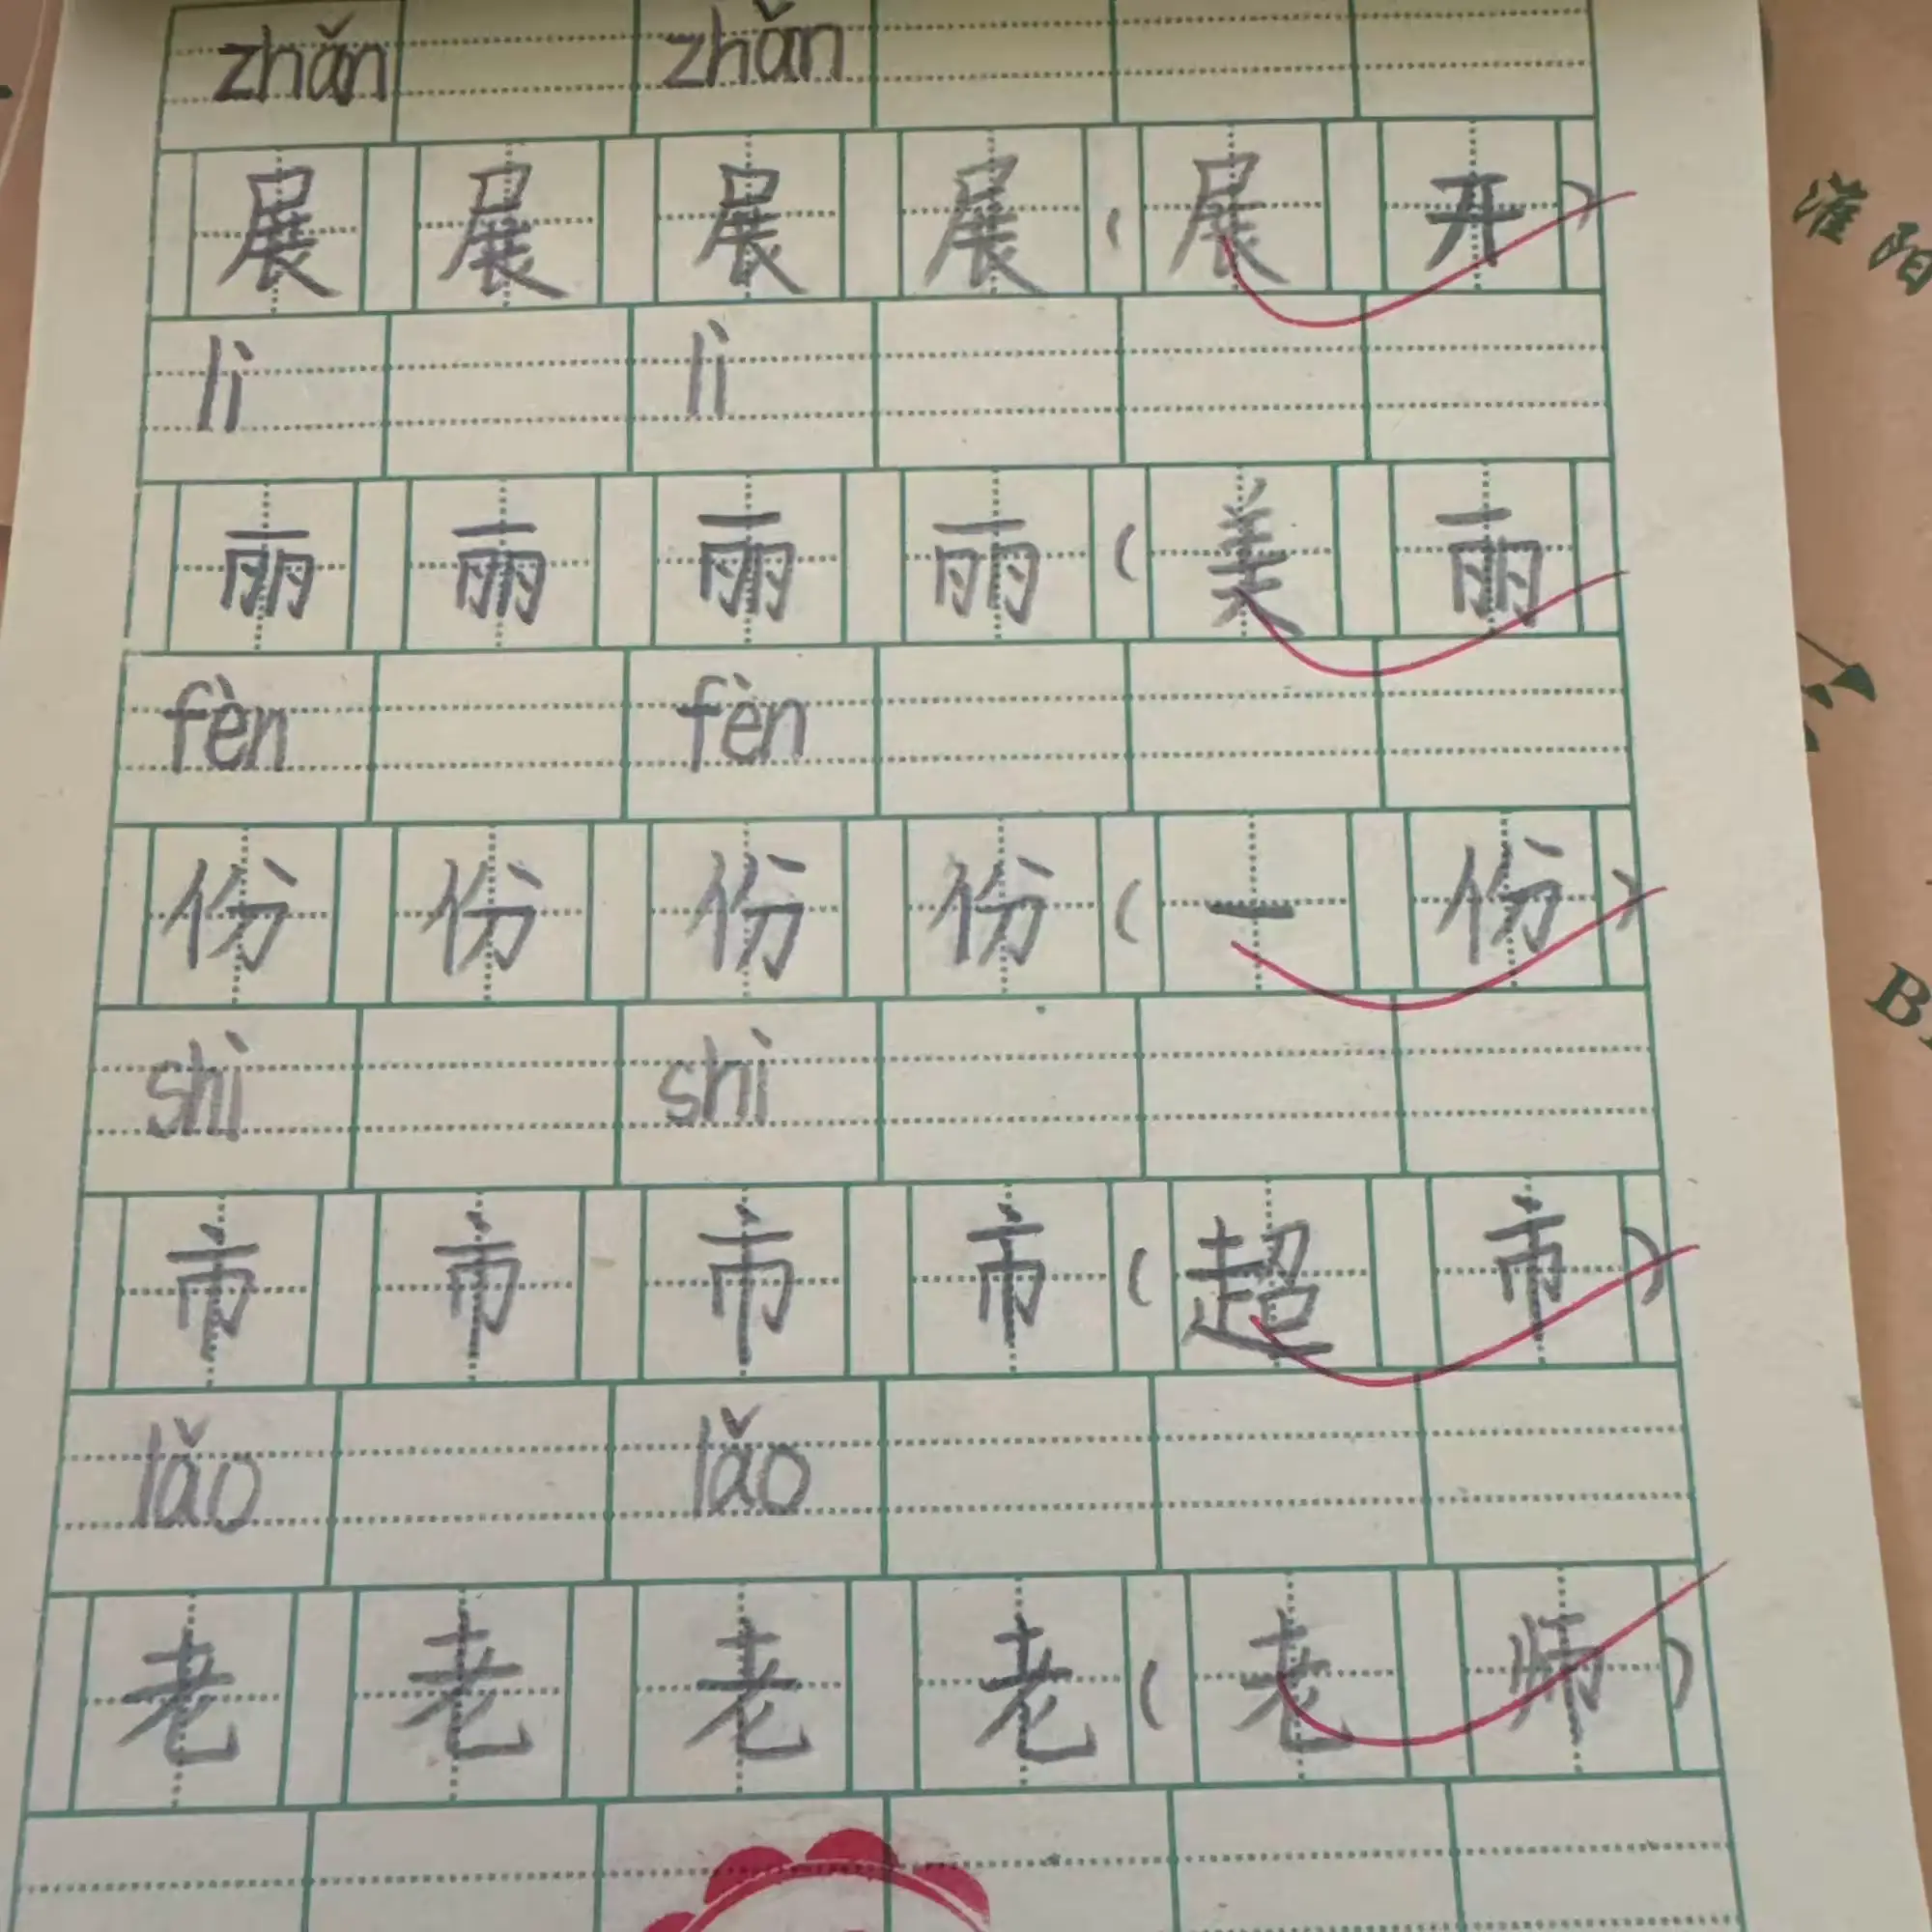 zhǎn zhǎn
展 展 展 展 ( 展 开 )
lì lì
丽 丽 丽 丽 ( 美 丽
fèn fèn
份 份 份 份 ( 一 份 )
shì shì
市 市 市 市 ( 超 市 )
lǎo lǎo
老 老 老 老 ( 老 师 )
灌阳
B